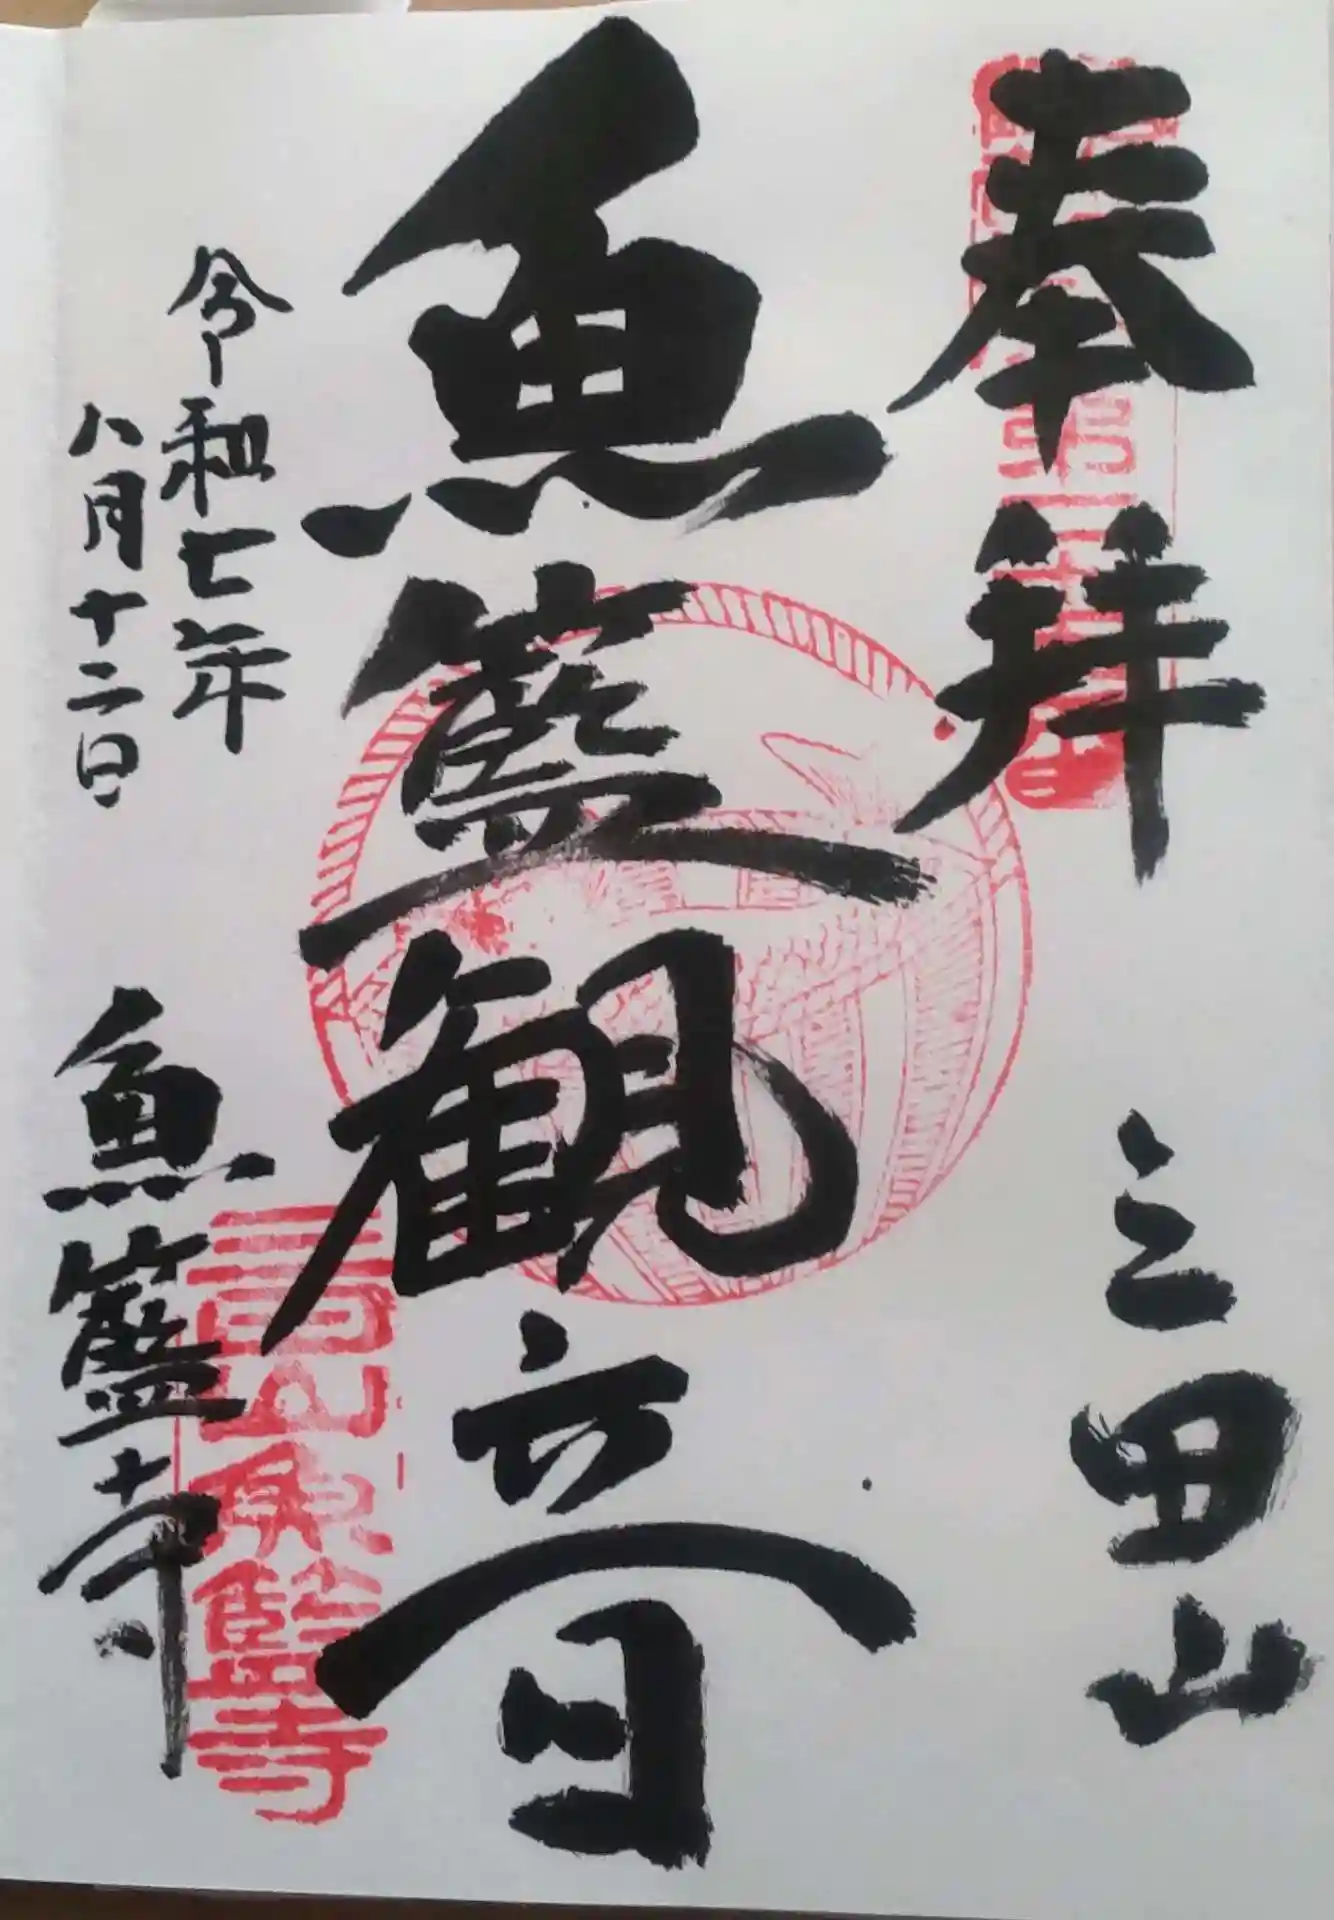 奉拝
三田山
魚籃観音
令和七年
八月十二日
魚籃寺
三田山魚籃寺